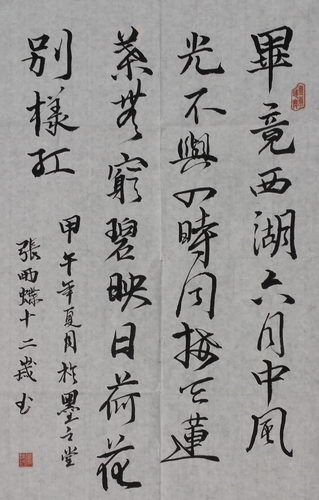 畢竟西湖六月中風
光不與四時同接天蓮
葉無窮碧映日荷花
別樣紅
甲午年夏月於墨之堂
張雨蝶十二歲书